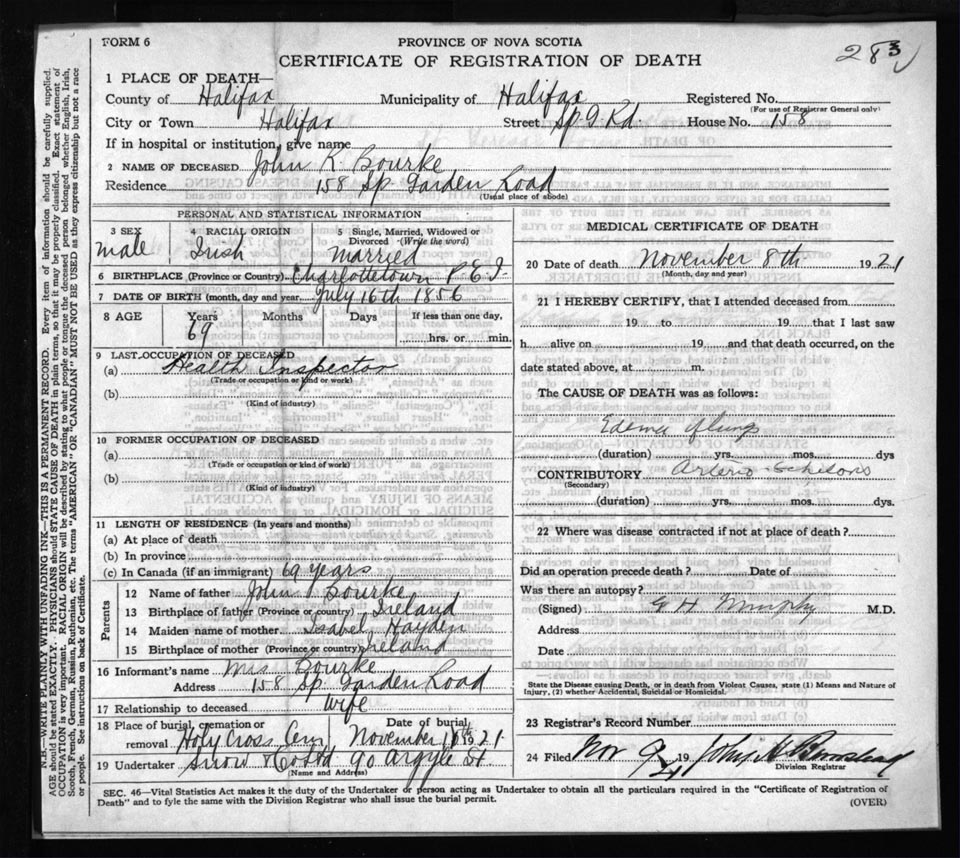 FORM 6
PROVINCE OF NOVA SCOTIA
283
CERTIFICATE OF REGISTRATION OF DEATH
1 PLACE OF DEATH—
County of Halifax Municipality of Halifax Registered No.
(For use of Registrar General only)
City or Town Halifax Street Sp. G. Rd. House No. 158
If in hospital or institution, give name
2 NAME OF DECEASED John K. Bourke
Residence 158 Sp. Garden Road
(Usual place of abode)
PERSONAL AND STATISTICAL INFORMATION
3 SEX male
4 RACIAL ORIGIN Irish
5 Single, Married, Widowed or Divorced (Write the word) Married
6 BIRTHPLACE (Province or Country) Charlottetown P E I
7 DATE OF BIRTH (month, day and year) July 16th 1856
8 AGE Years Months Days If less than one day,
69 hrs. or min.
9 LAST OCCUPATION OF DECEASED
(a) Health Inspector
(Trade or occupation or kind or work)
(b)
(Kind of industry)
10 FORMER OCCUPATION OF DECEASED
(a)
(Trade or occupation or kind of work)
(b)
(Kind of industry)
11 LENGTH OF RESIDENCE (In years and months)
(a) At place of death
(b) In province
(c) In Canada (if an immigrant) 69 years
Parents
12 Name of father John Bourke
13 Birthplace of father (Province or country) Ireland
14 Maiden name of mother Isabel Hayden
15 Birthplace of mother (Province or country) Ireland
16 Informant's name Mrs Bourke
Address 158 Sp. Garden Road
17 Relationship to deceased wife
18 Place of burial, cremation or removal Holy Cross Cem Date of burial November 10th 1921
19 Undertaker Snow & Co Ltd 90 Argyle St
(Name and Address)
MEDICAL CERTIFICATE OF DEATH
20 Date of death November 8th 1921
(Month, day and year)
21 I HEREBY CERTIFY, that I attended deceased from
19 to 19 that I last saw
h alive on 19 and that death occurred, on the
date stated above, at m.
The CAUSE OF DEATH was as follows:
Edema of lungs
(duration) yrs. mos. dys
CONTRIBUTORY Arterio-
(Secondary)
(duration) yrs. mos. dys.
22 Where was disease contracted if not at place of death?
Did an operation precede death? Date of
Was there an autopsy?
(Signed) G H Murphy M.D.
Address
Date
State the Disease causing Death, or in death from Violent Causes, state (1) Means and Nature of
Injury, (2) whether Accidental, Suicidal or Homicidal.
23 Registrar's Record Number
24 Filed Nov 9 1921 John H
Division Registrar
SEC. 46—Vital Statistics Act makes it the duty of the Undertaker or person acting as Undertaker to obtain all the particulars required in the "Certificate of Registration of
Death" and to fyle the same with the Division Registrar who shall issue the burial permit.
(OVER)
N.B.—WRITE PLAINLY WITH UNFADING INK—THIS IS A PERMANENT RECORD. Every item of information should be carefully supplied.
AGE should be stated EXACTLY. PHYSICIANS should STATE CAUSE OF DEATH in plain terms, so that it may be properly classified. Exact statement of
OCCUPATION is very important. RACIAL ORIGIN will be described by stating to what people or tongue the deceased person belonged whether English, Irish,
Scotch, French, German, Russian, Ruthenian, etc. The terms "AMERICAN" OR "CANADIAN" MUST NOT BE USED as they express citizenship but not a race
or people. See instructions on back of Certificate.